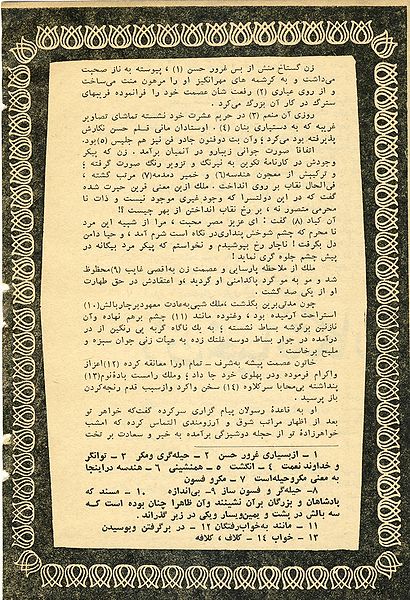 زن گستاخ منش از بس غرور حسن (۱) ، پیوسته به ناز صحبت
می‌داشت و به کرشمه های مهرانگیز او را مرهون منت می‌ساخت
و از روی عیاری (۲) رفعت شأن عصمت خود را فرانموده فریبهای
سترگ در کار آن بزرگ می‌کرد .
روزی آن منعم (۳) در حریم عشرت خود نشسته تماشای تصاویر
غریبه که به دستیاری بنان (۴) . اوستادان مانی قسلم حسن نگارش
پذیرفته بود می‌کرد ؛ وآن بت ذوفنون جادو فن نیز هم جلیس (۵)بود.
اتفاقاً صورت جوانی زیباروی در آنمیان برآمد . زن که پیکر
وجودش در کارنامهٔ تکوین به نیرنگ و تزویر رنگ صورت گرفته ؛
و ترکیبش از معجون هندسه(۶) و خمیر دمدمه(۷) مرتب گشته ،
فی‌الحال نقاب بر روی انداخت . ملك ازین معنی قرین حیرت شده
گفت که در این دولتسرا که وجود غیری موجود نیست و ذات نا
محرمی متصور نه ، بر رخ نقاب انداختن از بهر چیست ؟!
آن کیاد (۸) گفت : ای عزیز مصر محبت ، مرا از شبیه این مرد
نا محرم که چشم شوخش پنداری‌در نگاه است شرم آمد ، و حیا دامن
دل بگرفت ! ناچار رخ بپوشیدم و نخواستم که پیکر مرد بیگانه در
پیش چشم جلوه گری نماید !
ملك از ملاحظه پارسایی و عصمت زن به‌اقصی غایت (۹)محظوظ
شد و مو به مو گرد پاکدامنی او گردید ،و اعتقادش در حق طهارت
او از یکی صد گشت .
چون مدتی‌برین بگذشت ،ملك شبی‌به‌عادت معهودبرچاربالش(۱۰)
استراحت آرمیده بود . وغنوده مانند (۱۱) چشم برهم نهاده وآن
نازنین برگوشه بساط نشسته ؛ به یك ناگاه گربه یی رنگین از در
درآمده در جوار بساط دوسه غلتك زده به هیأت زنی جوان سبزه و
ملیح برخاست .
خاتون عصمت پیشه به‌شرف ــ تمام اورا معانقه کرده (۱۲)اعزاز
واکرام فرموده ودر پهلوی خود جا داد ؛ وملك رامست بادهٔ‌نوم(۱۳)
پنداشته بی‌محابا سرکلاوه (۱۴) سخن واکرد وازسبب قدم رنجه‌کردن
باز پرسید .
او به قاعدهٔ رسولان پیام گزاری سرکرده گفت‌که خواهر تو
بعد از اظهار مراتب شوق و آرزومندی التماس کرده که امشب
خواهرزادهٔ تو از حجله دوشیزگی برآمده به خیر و سعادت بر تخت
۱ ــ ازبسیاری غرور حسن ۲ ــ حیله‌گری ومکر ۳ ــ توانگر
و خداوند نعمت ۴ ــ انگشت ۵ ــ همنشینی ۶ ــ هندسه دراینجا
به معنی مکروحیله‌است ۷ ــ مکرو فسون
۸ــ حیله‌گر و فسون ساز ۹ــ بی‌اندازه ۱۰ ــ مسند که
پادشاهان و بزرگان برآن نشینند وآن ظاهراً چنان بوده است کــه
سه بالش در پشت و یمین‌ویسار ویکی در زیر گذراند.
۱۱ ــ مانند به‌خواب‌رفتگان ۱۲ ــ در برگرفتن وبوسیدن
۱۳ ــ خواب ۱۴ ــ کلاف ، کلافه